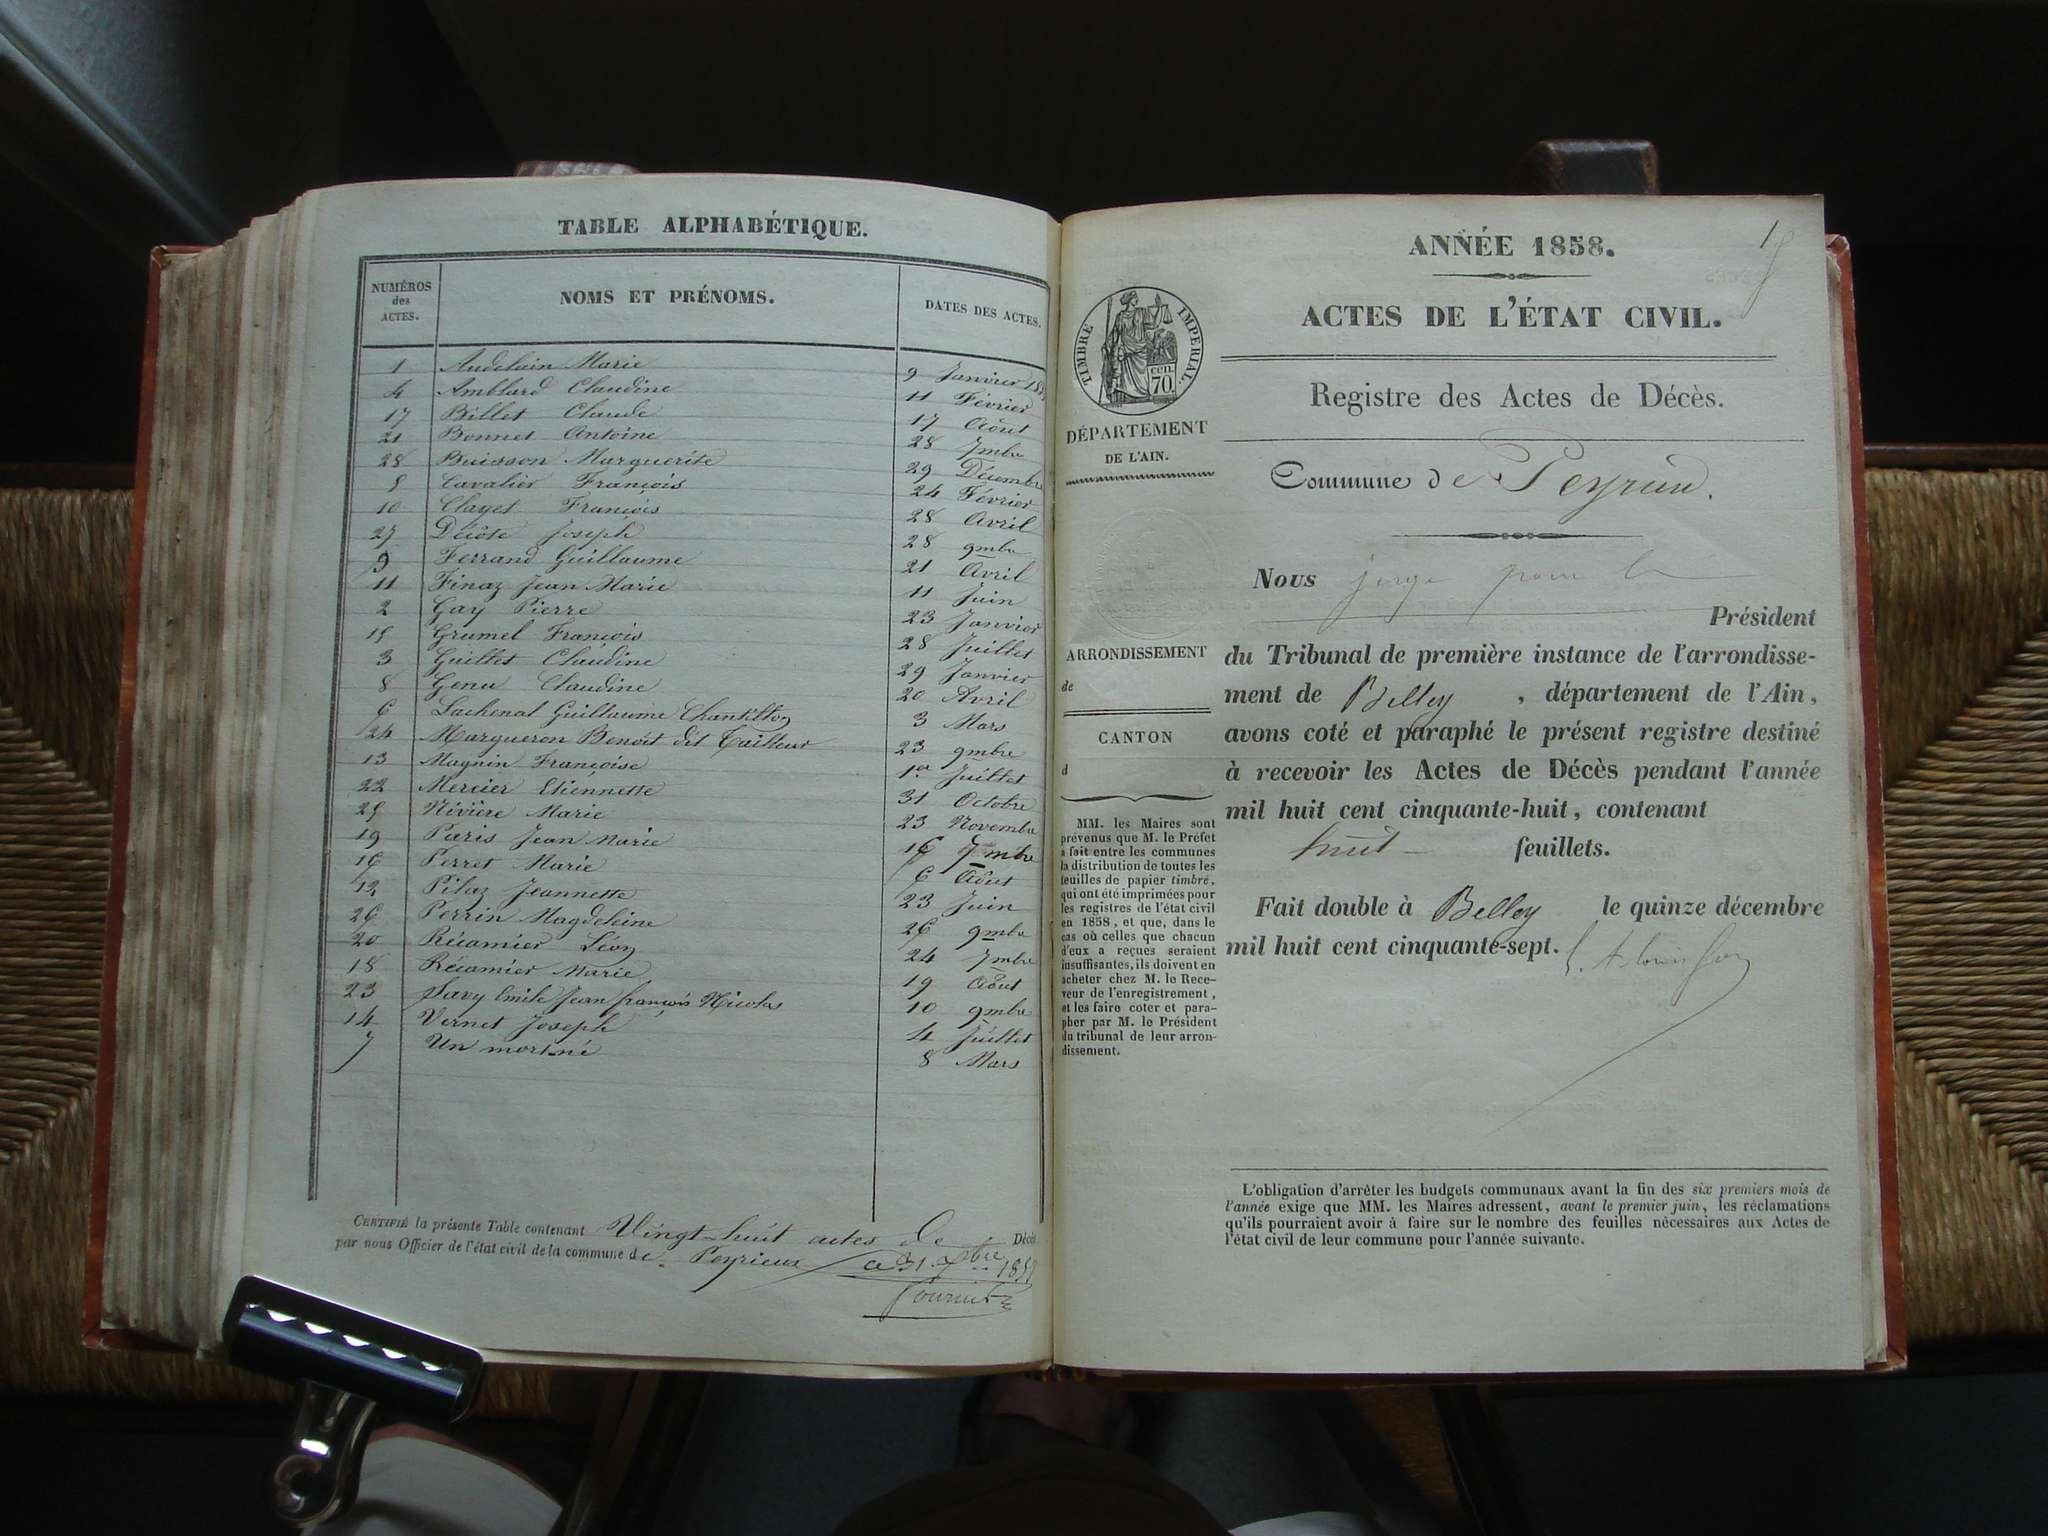 TABLE ALPHABÉTIQUE.
NUMÉROS des ACTES. NOMS ET PRÉNOMS. DATES DES ACTES.
1 Audelain Marie 9 Janvier
4 Amblard Claudine 11 Février
17 Billet Claude 17 Août
21 Bonnet Antoine 28 7mbre
28 Buisson Marguerite 29 Décembre
5 Cavalier François 24 Février
10 Clayet François 28 Avril
27 Décôte Joseph 28 9mbre
9 Ferrand Guillaume 21 Avril
11 Finaz Jean Marie 11 Juin
2 Gay Pierre 23 Janvier
15 Grumel François 28 Juillet
3 Guillet Claudine 29 Janvier
8 Genu Claudine 20 Avril
6 Lachenal Guillaume Chantillon 3 Mars
24 Margueron Benoit dit Tailleur 23 9mbre
13 Magnin Françoise 1er Juillet
22 Mercier Etiennette 31 Octobre
25 Nivière Marie 23 Novembre
19 Paris Jean Marie 16 7mbre
16 Perret Marie 6 Août
12 Pilaz Jeannette 23 Juin
26 Perrin Magdeleine 26 9mbre
20 Récamier Léon 24 7mbre
18 Récamier Marie 19 Août
23 Savy Emile Jean françois Nicolas 10 9mbre
14 Vernet Joseph 4 Juillet
7 Un mort né 8 Mars
CERTIFIÉ la présente Table contenant Vingt-huit actes de Décès
par nous Officier de l'état civil de la commune de Peyrieux a 31
ANNÉE 1858.
ACTES DE L'ÉTAT CIVIL.
Registre des Actes de Décès.
TIMBRE IMPÉRIAL.
CEN. 70.
DÉPARTEMENT
DE L'AIN.
Commune de
Nous juge pour le
Président
du Tribunal de première instance de l'arrondisse-
ment de Belley, département de l'Ain,
avons coté et paraphé le présent registre destiné
à recevoir les Actes de Décès pendant l'année
mil huit cent cinquante-huit, contenant
huit feuillets.
Fait double à Belley le quinze décembre
mil huit cent cinquante-sept.
ARRONDISSEMENT
de
CANTON
d
MM. les Maires sont
prévenus que M. le Préfet
a fait entre les communes
la distribution de toutes les
feuilles de papier timbré,
qui ont été imprimées pour
les registres de l'état civil
en 1858, et que, dans le
cas où celles que chacun
d'eux a reçues seraient
insuffisantes, ils doivent en
acheter chez M. le Rece-
veur de l'enregistrement,
et les faire coter et para-
pher par M. le Président
du tribunal de leur arron-
dissement.
L'obligation d'arrêter les budgets communaux avant la fin des six premiers mois de
l'année exige que MM. les Maires adressent, avant le premier juin, les réclamations
qu'ils pourraient avoir à faire sur le nombre des feuilles nécessaires aux Actes de
l'état civil de leur commune pour l'année suivante.